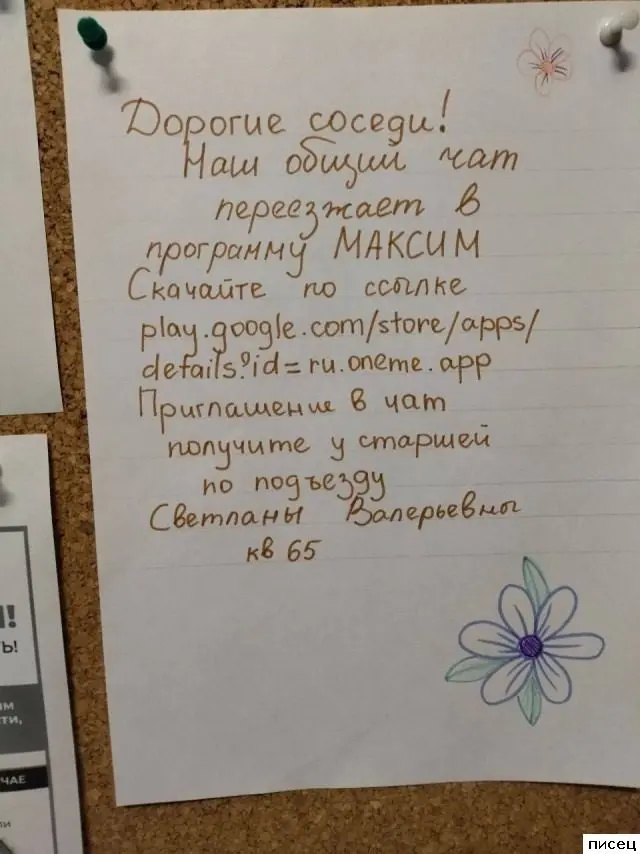 Дорогие соседи!
Наш общий чат
переезжает в
программу МАКСИМ
Скачайте по ссылке
play.google.com/store/apps/
details?id=ru.oneme.app
Приглашение в чат
получите у старшей
по подъезду
Светланы Валерьевны
кв 65
!
Ь!
ТИ,
ЧАЕ
писец